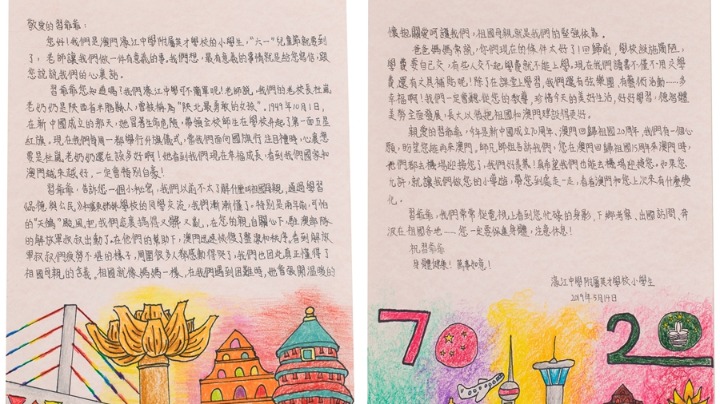 敬愛的習爺爺：
您好！我們是澳門濠江中學附屬英才學校的小學生，“六一”兒童節就要到了，老師讓我們做一件有意義的事，我們想，最有意義的事情就是給您寫信，跟您說說我們的心裏話。
習爺爺您知道嗎？我們濠江中學可不簡單呢！老師說，我們的老校長杜嵐老奶奶是陝西省米脂縣人，曾被稱為“陝北最勇敢的女孩”。1949年10月1日，在新中國成立的那天，她冒着生命危險，帶領全校師生在學校升起了第一面五星紅旗。現在我們每周一都舉行升旗儀式，當我們面向國旗行注目禮時，心裏想要是杜嵐老奶奶還在該多好啊！他看到我們現在幸福成長，看到我們國家和澳門越來越好，一定會特別自豪！
習爺爺，告訴您一個小秘密，我們以前不太了解什麼叫祖國母親，通過學習《品德與公民》和姐妹學校的同學交流，我們漸漸懂了。特別是兩年前，可怕的“天鴿”颱風，把我們家裏搞得又髒又亂，在您的親自關心下，駐澳部隊的解放軍叔叔出動了。在他們的幫助下，澳門迅速恢復了整潔和秩序。看到解放軍叔叔們疲勞不堪的樣子，周圍很多人都感動得哭了，我們也因此真正懂得了祖國母親的含義。祖國就像媽媽一樣，在我們遇到困難時，她常張開溫暖的
懷抱關愛呵護我們，祖國母親就是我們的堅強依靠。
爸爸媽媽常說，你們現在的條件太好了！回歸前，學校設施簡陋，學費要自己交，有些人交不起學費就不能上學，現在我們讀書不僅不用交學費還有文具補貼呢！除了在課堂上學習，我們還有弦樂團、有藝術活動……多幸福啊！我們一定會聽從您的教導，珍惜今天的美好生活，好好學習，德智體美勞全面發展，長大以後把祖國和澳門建設得更好。
親愛的習爺爺，今年是新中國成立70周年、澳門回歸祖國20周年，我們有一個心願，盼望您能再來澳門，師兄師姐告訴我們，您在澳門回歸祖國15周年來澳門時，他們都去機場迎接您了，我們好羨慕！真希望我們也能去機場迎接您，如果您允許，就讓我們做您的小導遊，帶您到處走一走，看看澳門和您上次來有什麼變化。
習爺爺，我們常常從電視上看到您忙碌的身影，下鄉考察、出國訪問，奔波在祖國各地……您一定要保重身體，注意休息！
祝習爺爺
身體健康！萬事如意！
濠江中學附屬英才學校小學生
2019年5月14日
70
20